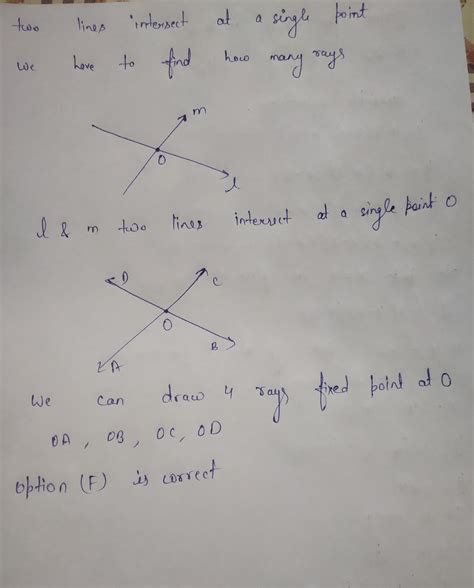 two lines intersect at a single point
we have to find how many rays
m
O
l
l & m two lines intersect at a single point O
D
C
O
B
A
We can draw 4 rays fixed point at O
OA, OB, OC, OD
option (F) is correct